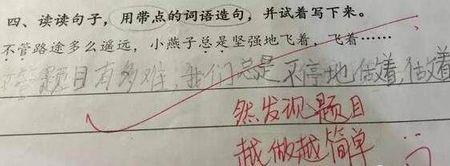 四、读读句子，用带点的词语造句，并试着写下来。
不管路途多么遥远，小燕子总是坚强地飞着，飞着……
不管题目有多难，我们总是不停地做着，做着
然发现题目
越做越简单